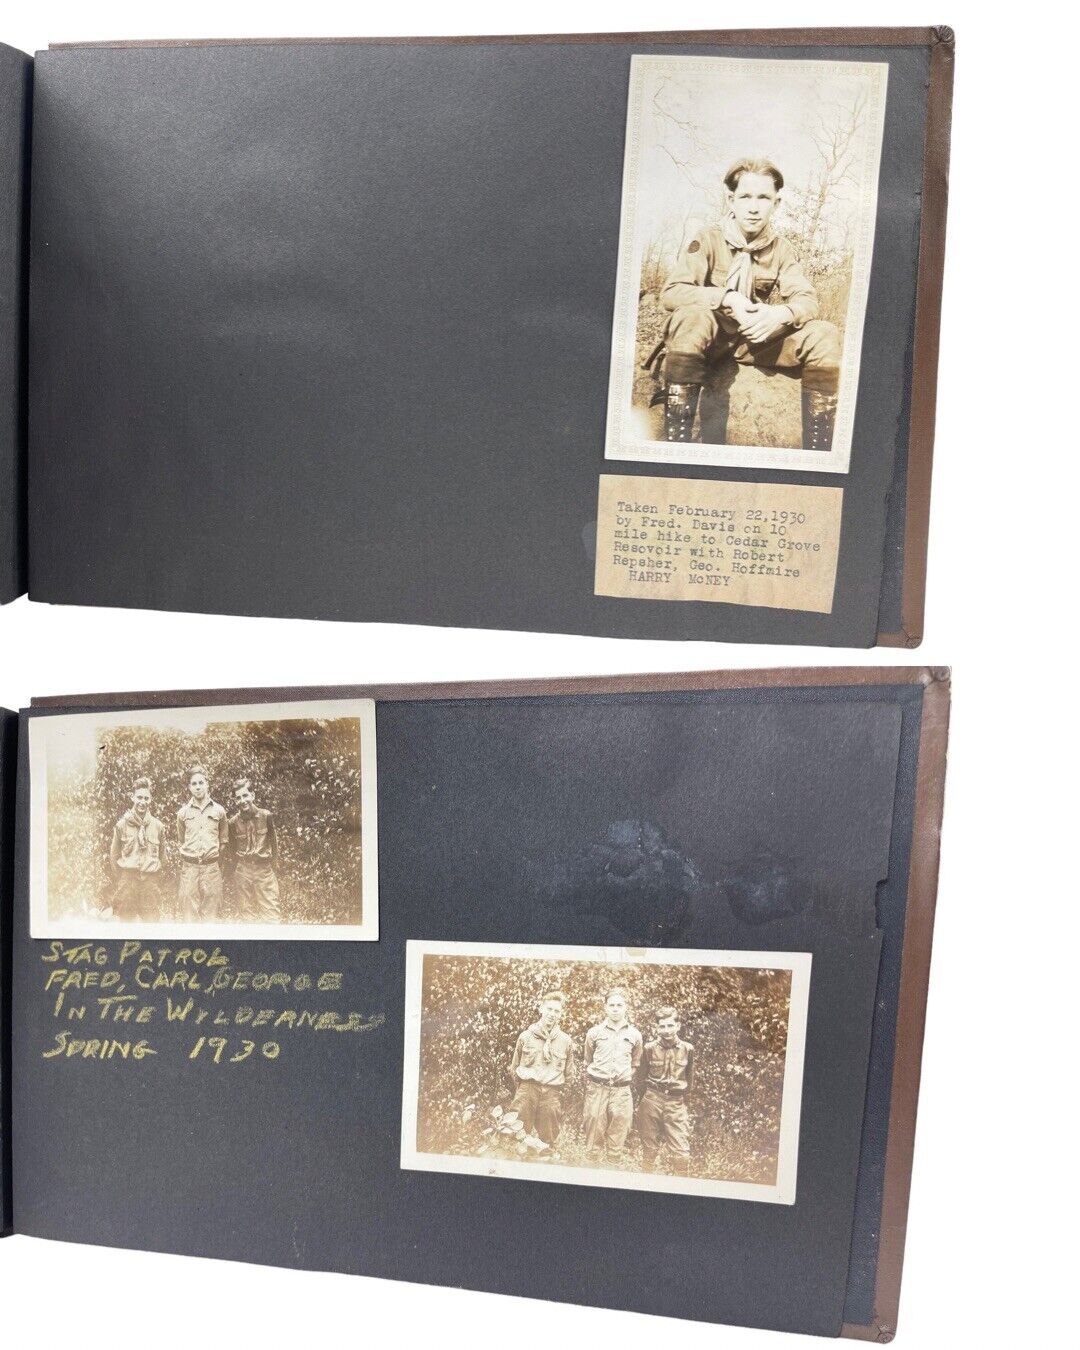 Taken February 22,1930
by Fred. Davis on 10
mile hike to Cedar Grove
Resovoir with Robert
Repsher, Geo. Hoffmire
HARRY McNEY
STAG PATROL
FRED, CARL, GEORGE
IN THE WYLDERNESS
SPRING 1930